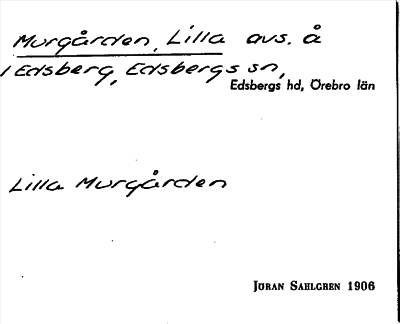 Murgården, Lilla avs. å
/ Edsberg, Edsbergs sn,
Edsbergs hd, Örebro län
Lilla Murgården
JÖRAN SAHLGREN 1906